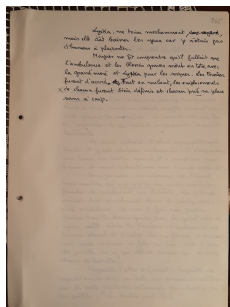 Lydia, me toisa méchamment
mais elle dut baisser les yeux car je n'étais pas
d'humeur à plaisanter.
Morgan ne fit comprendre qu'il fallait que
l'ambulance et les blessés graves soient en tête avec
la grand-mère et Lydia pour les soigner. Les
furent d'accord. Tout en roulant, les emplacements
de chacun furent bien définis et chacun prit sa place
sans à coup.